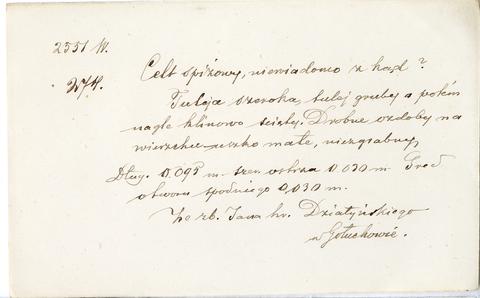 2351 W.
274.
Celt spiżowy, niewiadomo z kąd?
Tuleja szeroka, tulej gruby a potém
nagle klinowo ścięty. Drobne ozdoby na
wierzchu uszko małe, niezgrabny,
Dług. 0.095 m. szer. ostrza 0.030 m. Śred
otworu spodniego 0,030 m.
Ze zb. Jana hr. Działyńskiego
w Gołuchowie.